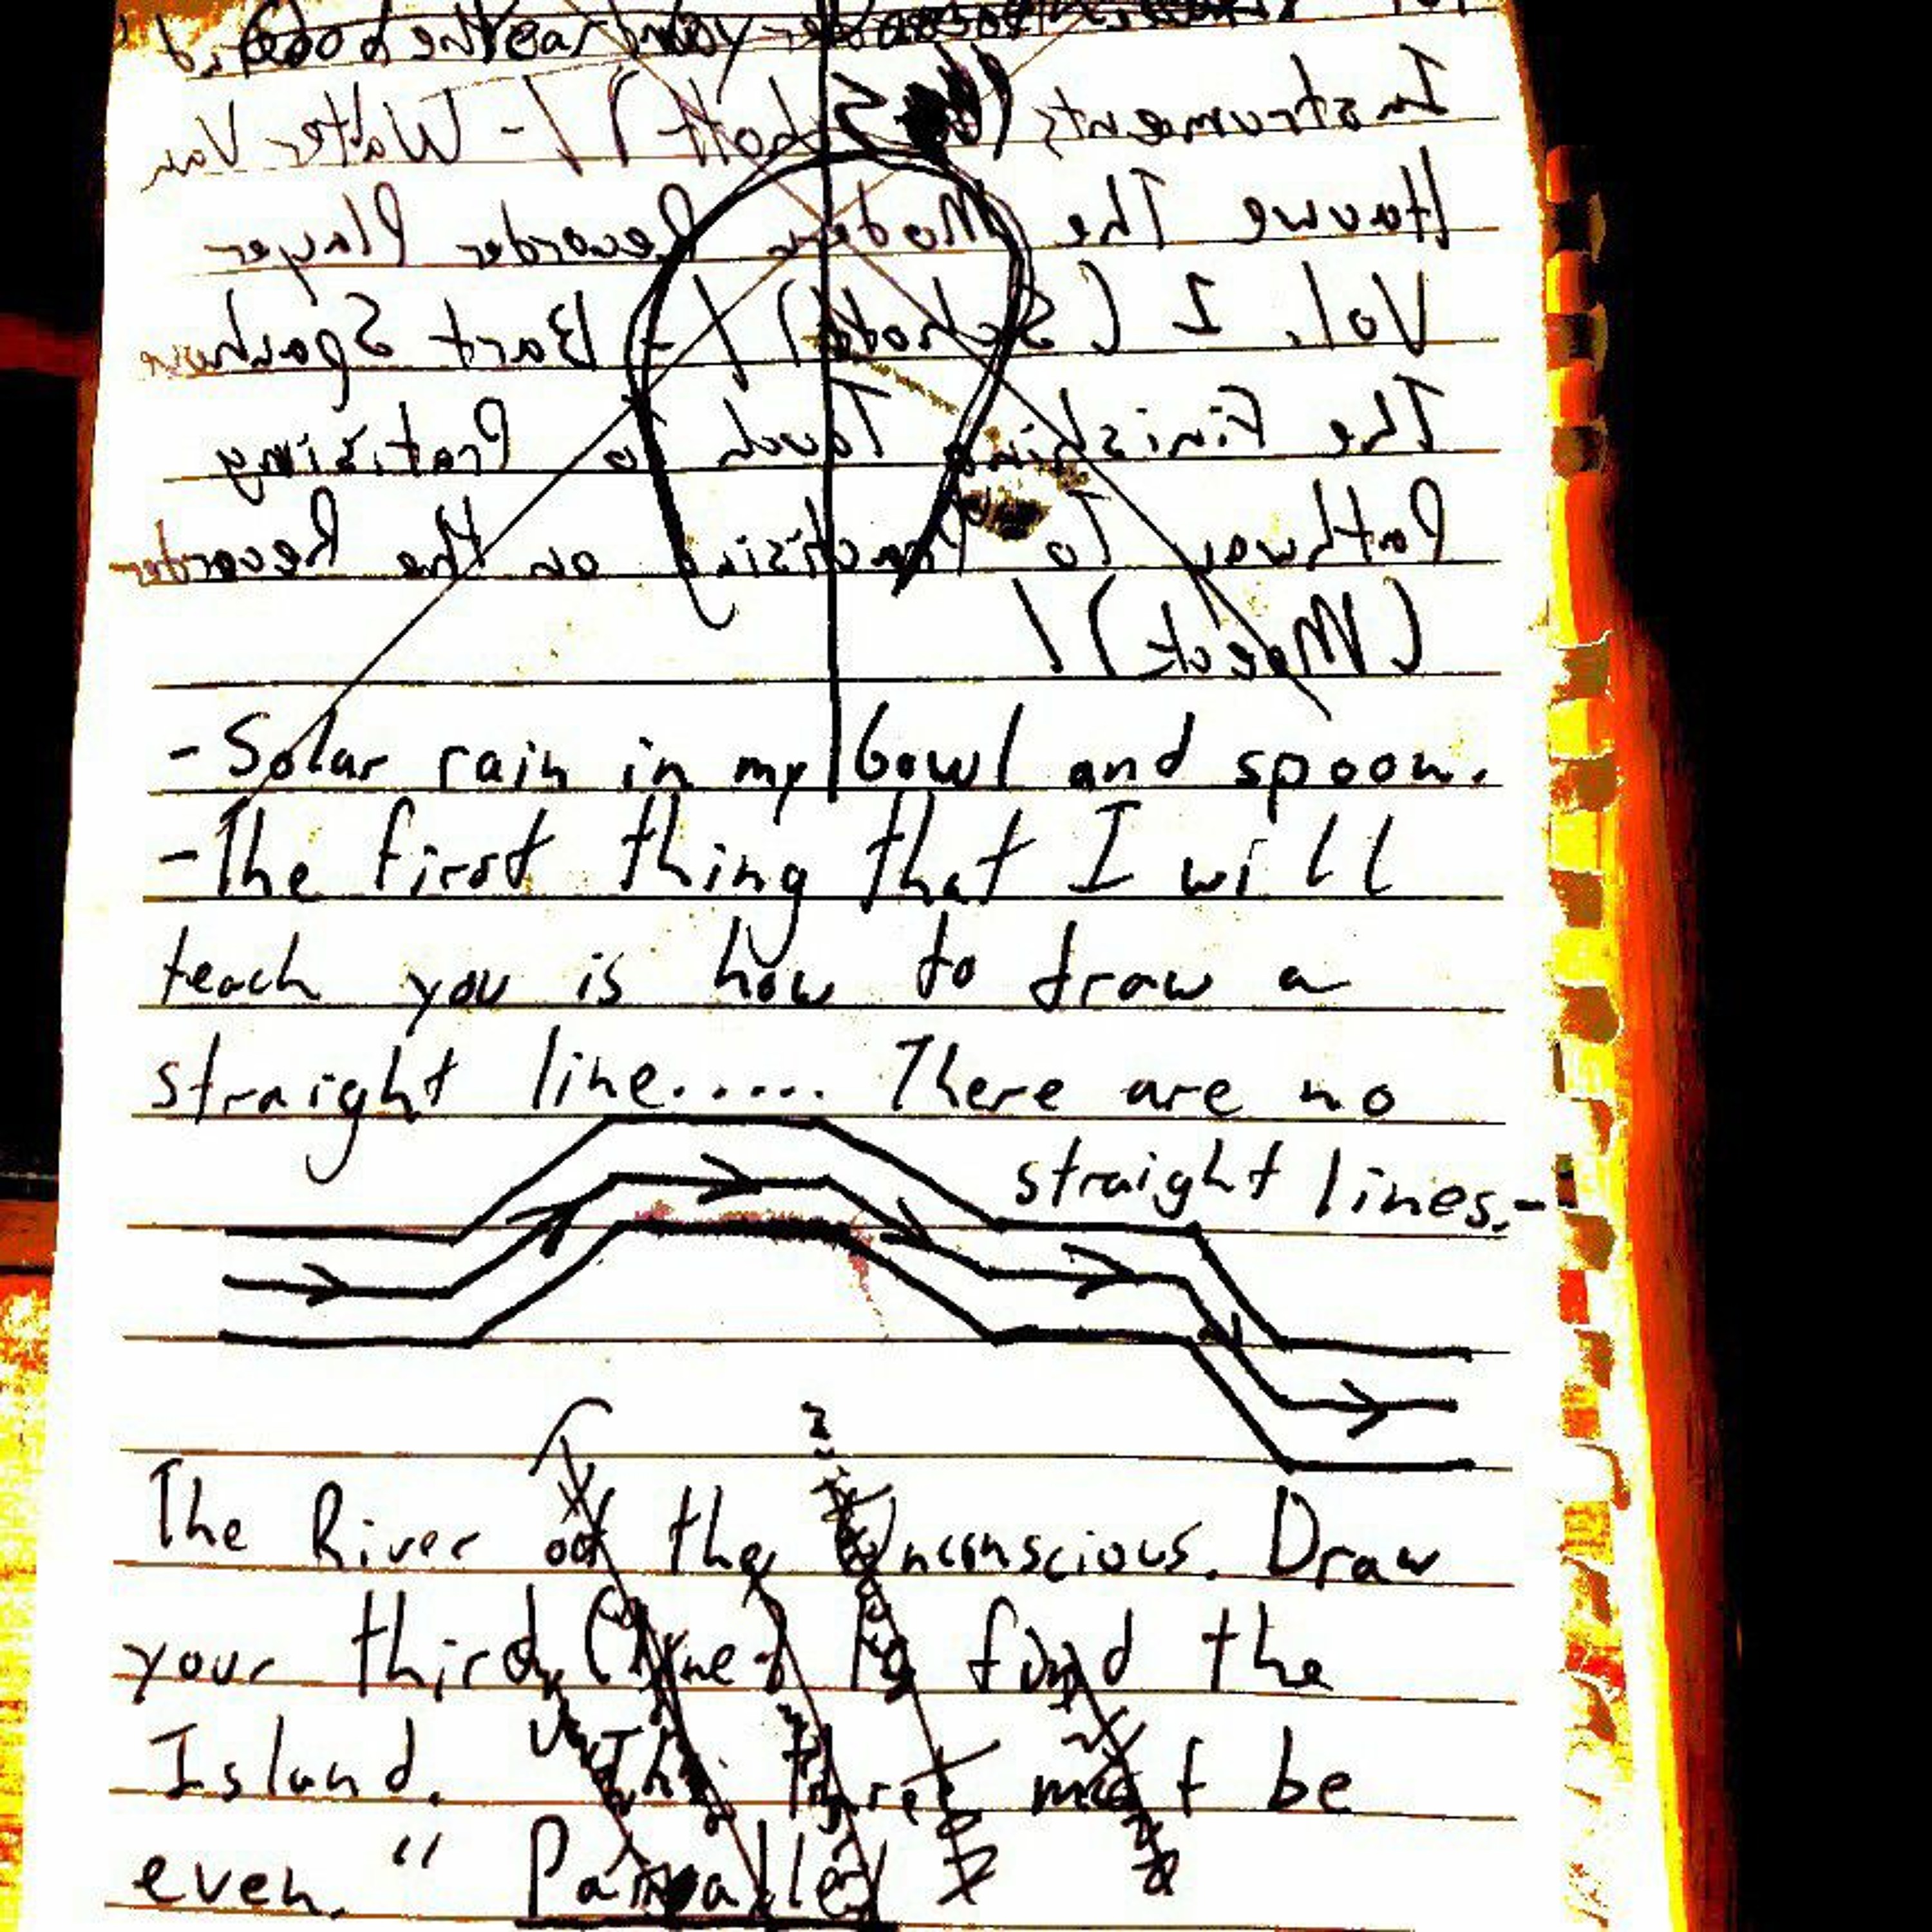 Instruments (Schott) / - Walter Van
Hauwe The Modern Recorder Player
Vol. I (Schott) / - Bart Spanhove
The Finishing Touch to Pratising
Pathway To Practising on the Recorder
(Moeck) /
- Solar rain in my bowl and spoon.
- The first thing that I will
teach you is how to draw a
straight line...... There are no
straight lines.-
The River of the Unconscious. Draw
your third (line) to find the
Island. "The three must be
even." Parallel